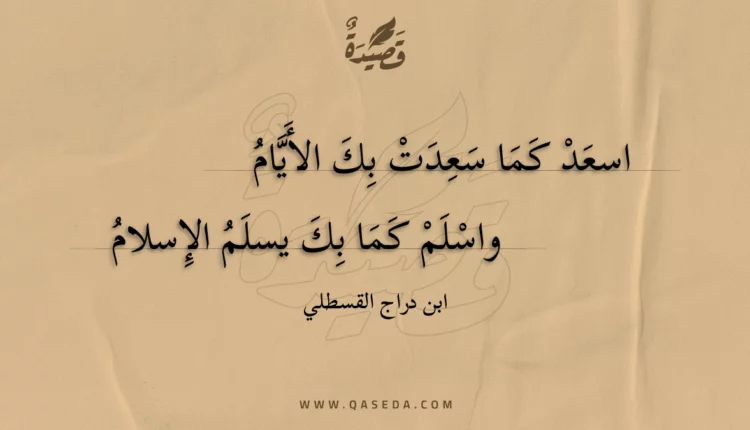 قَصِيدَةٌ
اسعَدْ كَمَا سَعِدَتْ بِكَ الأَيَّامُ
واسْلَمْ كَمَا بِكَ يسلَمُ الإِسلامُ
ابن دراج القسطلي
WWW.QASEDA.COM